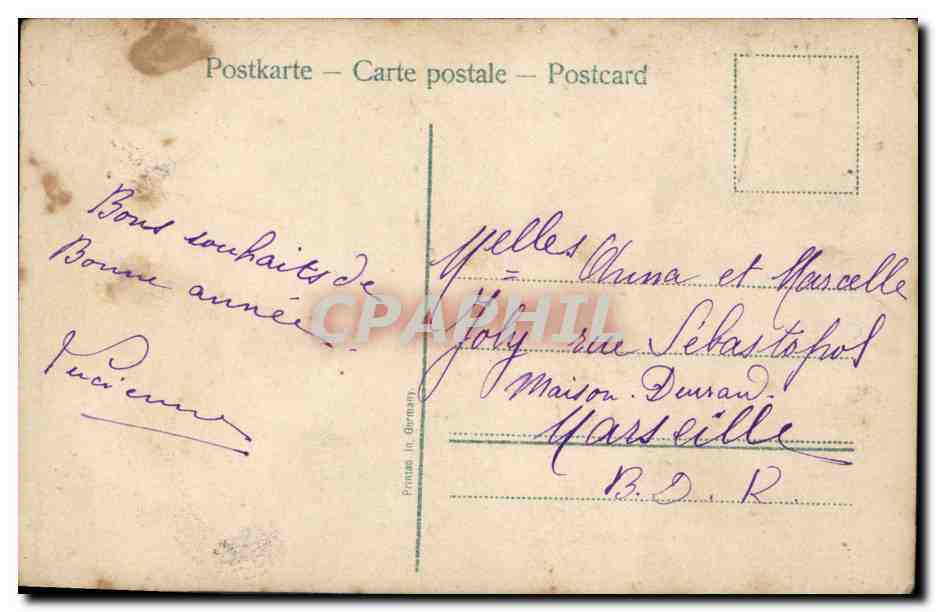 Postkarte – Carte postale – Postcard
Bons souhaits de
Bonne année
Lucienne
Melles Anna et Marcelle
Joly rue Sébastopol
Maison Durand
Marseille
B. D. R.
Printed in Germany.
CPAPHIL